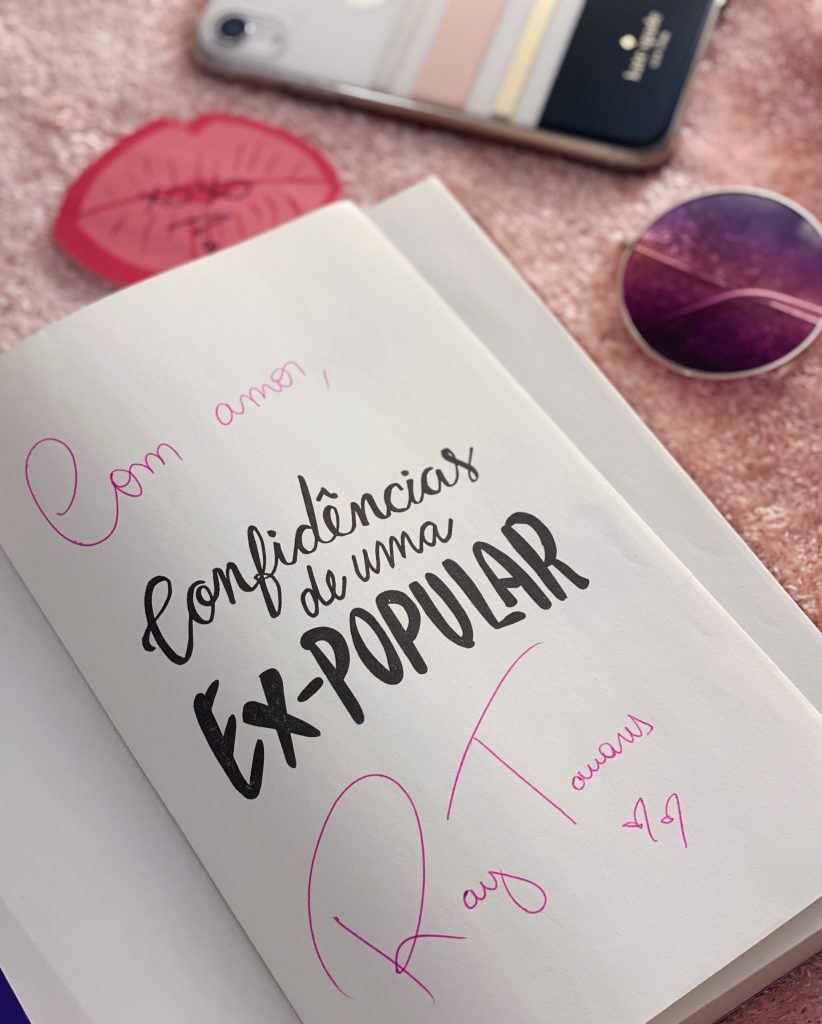 kate spade
XOXO
Com amor,
Confidências
de uma
EX-POPULAR
Ray Tavares